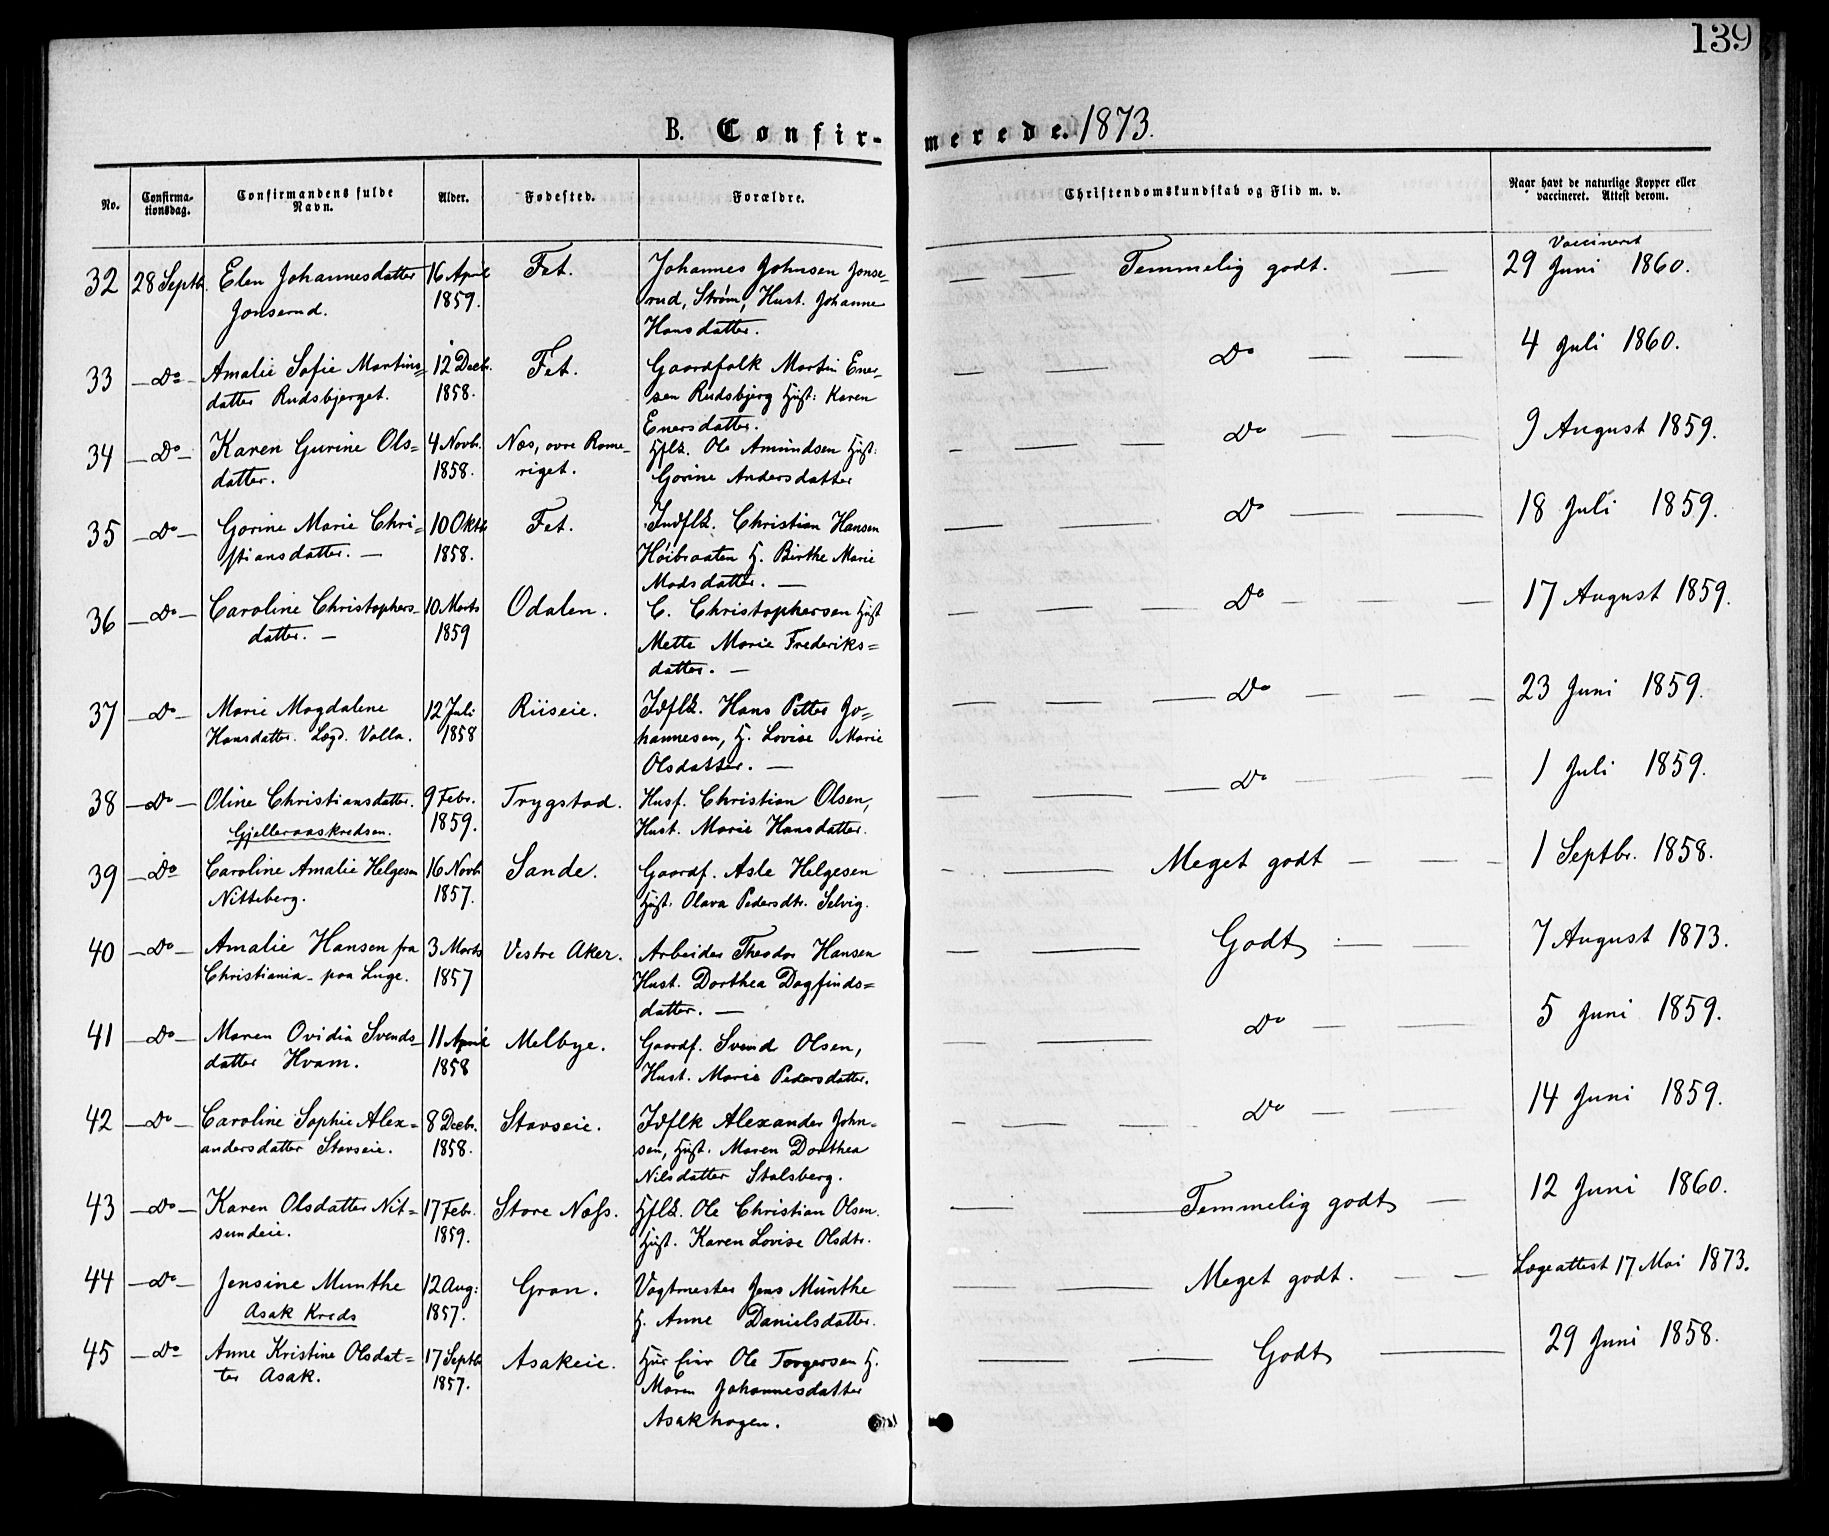 139
B. Confir-
merede. 1873.
No. Confirma-tionsdag. Confirmandens fulde Navn. Alder. Fødested. Forældre. Christendomskundskab og Flid m. v. Naar havt de naturlige Kopper eller vaccineret. Attest derom.
Vaccineret
32 28 Septb. Elen Johannesdatter 16 April Fet. Johannes Johnsen Jonse- Temmelig godt. 29 Juni 1860.
Jonserud. 1859. rud, Strøm, Hust. Johanne
Hansdatter.
33 - Do - Amalie Sofie Martins= 12 Decb. Fet. Gaardfolk Martin Ener- Do 4 Juli 1860.
datter Rudsbjerget. 1858. sen Rudsbjerg Hust: Karen
Enersdatter.
34 - Do - Karen Gurine Ols= 4 Novb. Næs, øvre Rome- Hflk. Ole Amundsen Hust: Do 9 August 1859.
datter. 1858. riget. Gorine Andersdatter
35 - Do - Gorine Marie Chri= 10 Oktb Fet. Indflk. Christian Hansen Do 18 Juli 1859.
stiansdatter. — 1858. Høibraaten H. Birthe Marie
Madsdatter. —
36 - Do - Caroline Christophers- 10 Marts Odalen. C. Christophersen Hust Do 17 August 1859.
datter. — 1859 Mette Marie Frederiks=
datter. —
37 - Do - Marie Magdalene 12 Juli Riiseie. Idflk. Hans Petter Jo= Do 23 Juni 1859.
Hansdatter. Lægd. Valla. 1858 hannesen, H. Lovise Marie
Olsdatter. —
38 - Do - Oline Christiansdatter. 9 Febr. Trygstad. Husf. Christian Olsen, Do 1 Juli 1859.
Gjelleraaskredsen. 1859. Hust. Marie Hansdatter.
39 - Do Caroline Amalie Helgesen 16 Novb. Sande. Gaardf. Asle Helgesen Meget godt 1 Septbr. 1858.
Nitteberg. 1857. Hust. Olava Pedersdtr. Selvig.
40 - Do - Amalie Hansen fra 3 Marts Vestre Aker. Arbeider Theodor Hansen Godt 7 August 1873.
Christiania - paa Luge. 1857 Hust. Dorthea Dagfinds=
datter. —
41 - Do - Maren Ovidia Svends- 11 April Melbye. Gaardf. Svend Olsen, Do 5 Juni 1859.
datter Hvam. 1858 Hust. Marie Pedersdatter.
42 - Do - Caroline Sophie Alex= 8 Decbr. Stavseie. Idflk Alexander John- Do 14 Juni 1859.
andersdatter Stavseie. 1858. sen, Hust. Maren Dorthea
Nilsdatter Stalsberg.
43 - Do - Karen Olsdatter Nit- 17 Febr. Store Næss. Hflk. Ole Christian Olsen. Temmelig godt 12 Juni 1860.
sundeie. 1859. Hust. Karen Lovise Olsdtr.
44 - Do - Jensine Munthe 12 Aug: Gran. Vagtmester Jens Munthe Meget godt. Lægeattest 17 Mai 1873.
Asak Kreds 1857. H. Anne Danielsdatter.
45 - Do Anne Kristine Olsdat= 17 Septb. Asakeie. Ole Torgersen H. Godt 29 Juni 1858.
ter Asak. 1857. Maren Johannesdatter
Asakhagen.